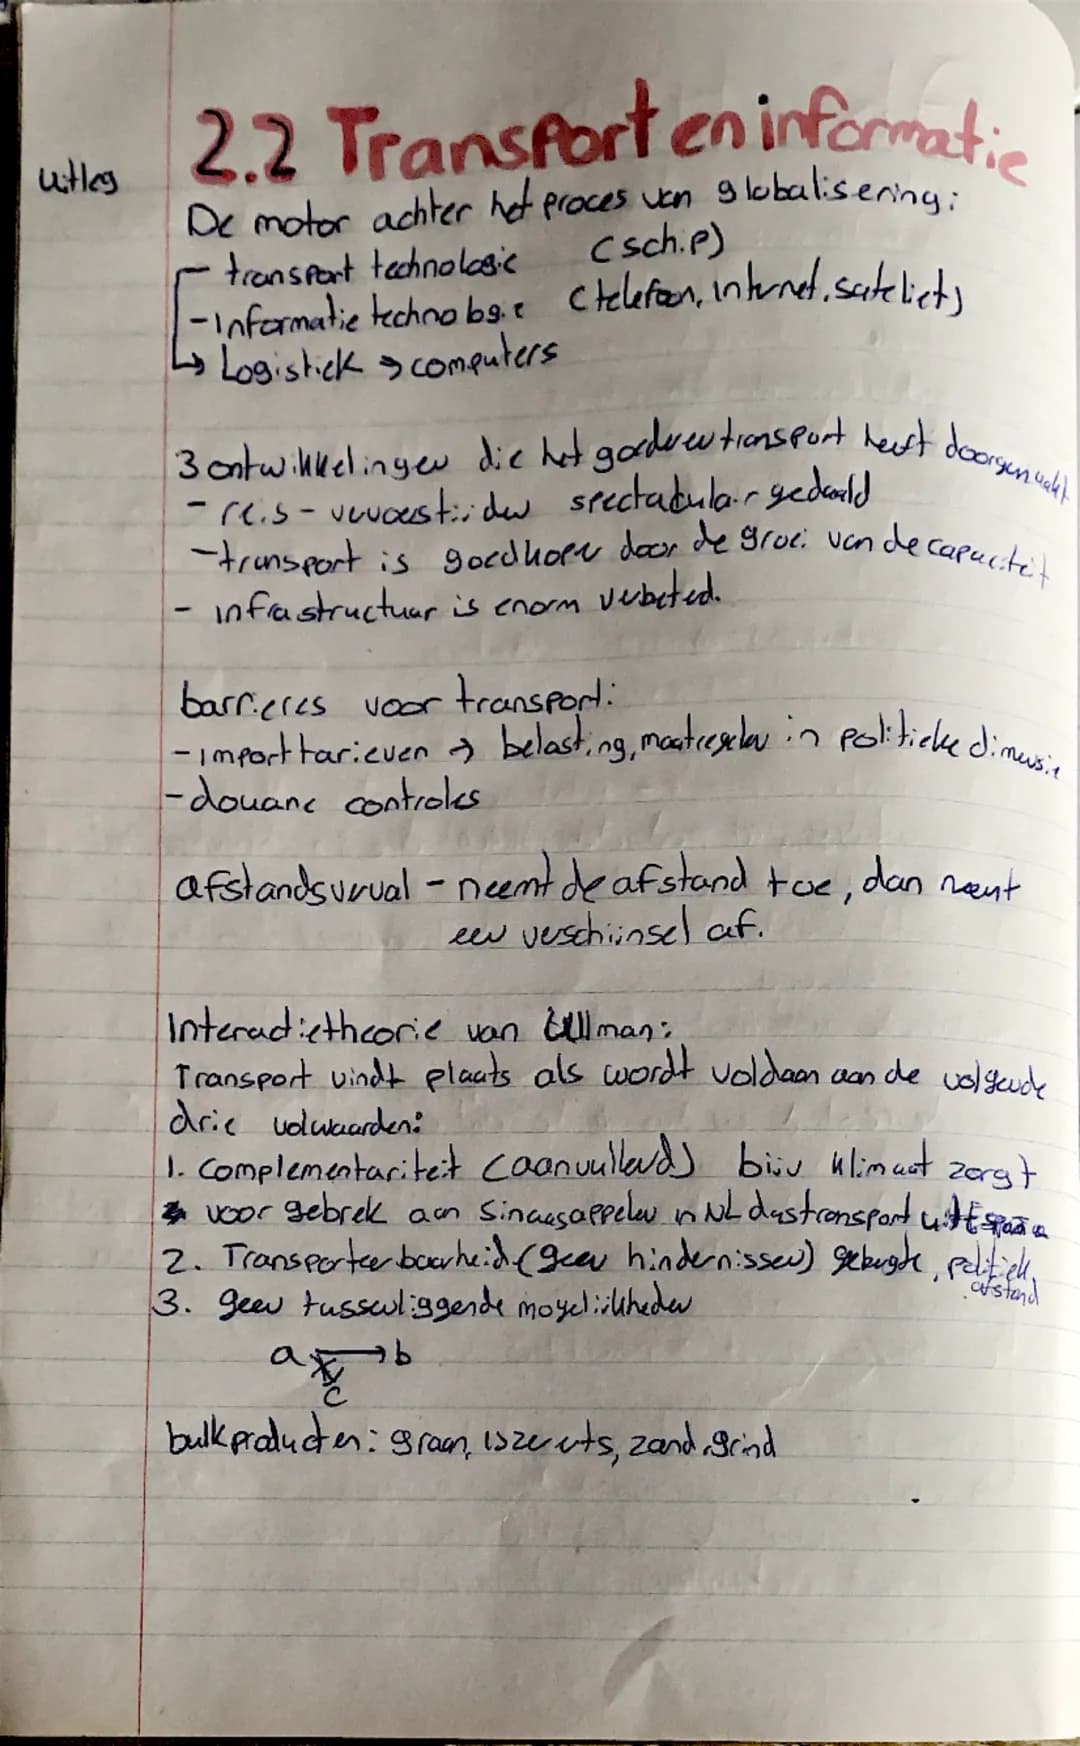 2.2 Transport en informatie
uitleg
De motor achter het proces van globalisering:
- transport technologie (schip)
- Informatie technologie (telefoon, internet, sateliet)
↳ Logistiek → computers
3 ontwikkelingen die het goederen transport heeft doorgemaakt
- reis- vervoerstijden spectaculair gedaald
- transport is goedkoper door de groei van de capaciteit
- infrastructuur is enorm verbeterd.
barrieres voor transport:
- import tarieven → belasting, maatregelen in politieke dimensie
- douane controles
afstandsverval - neemt de afstand toe, dan neemt
een verschijnsel af.
Interactietheorie van Ullman:
Transport vindt plaats als wordt voldaan aan de volgende
drie volwaarden:
1. Complementariteit (aanvullend) bijv klimaat zorgt
voor gebrek aan Sinaasappelen in NL dus transport uit Spanje
2. Transporteerbaarheid (geen hindernissen) gebergte, politiek,
afstand
3. geen tussenliggende mogelijkheden
a → b
c
bulkproducten: graan, ijzererts, zand, grind